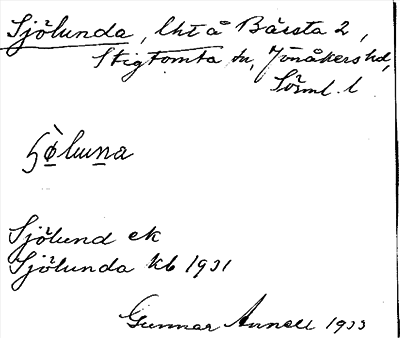 Sjölunda, lht å Bärsta 2,
Stigtomta sn, Jönåkers hd,
Sörml. l.
Sjölund ek
Sjölunda kb 1931
Gunnar Annell 1933